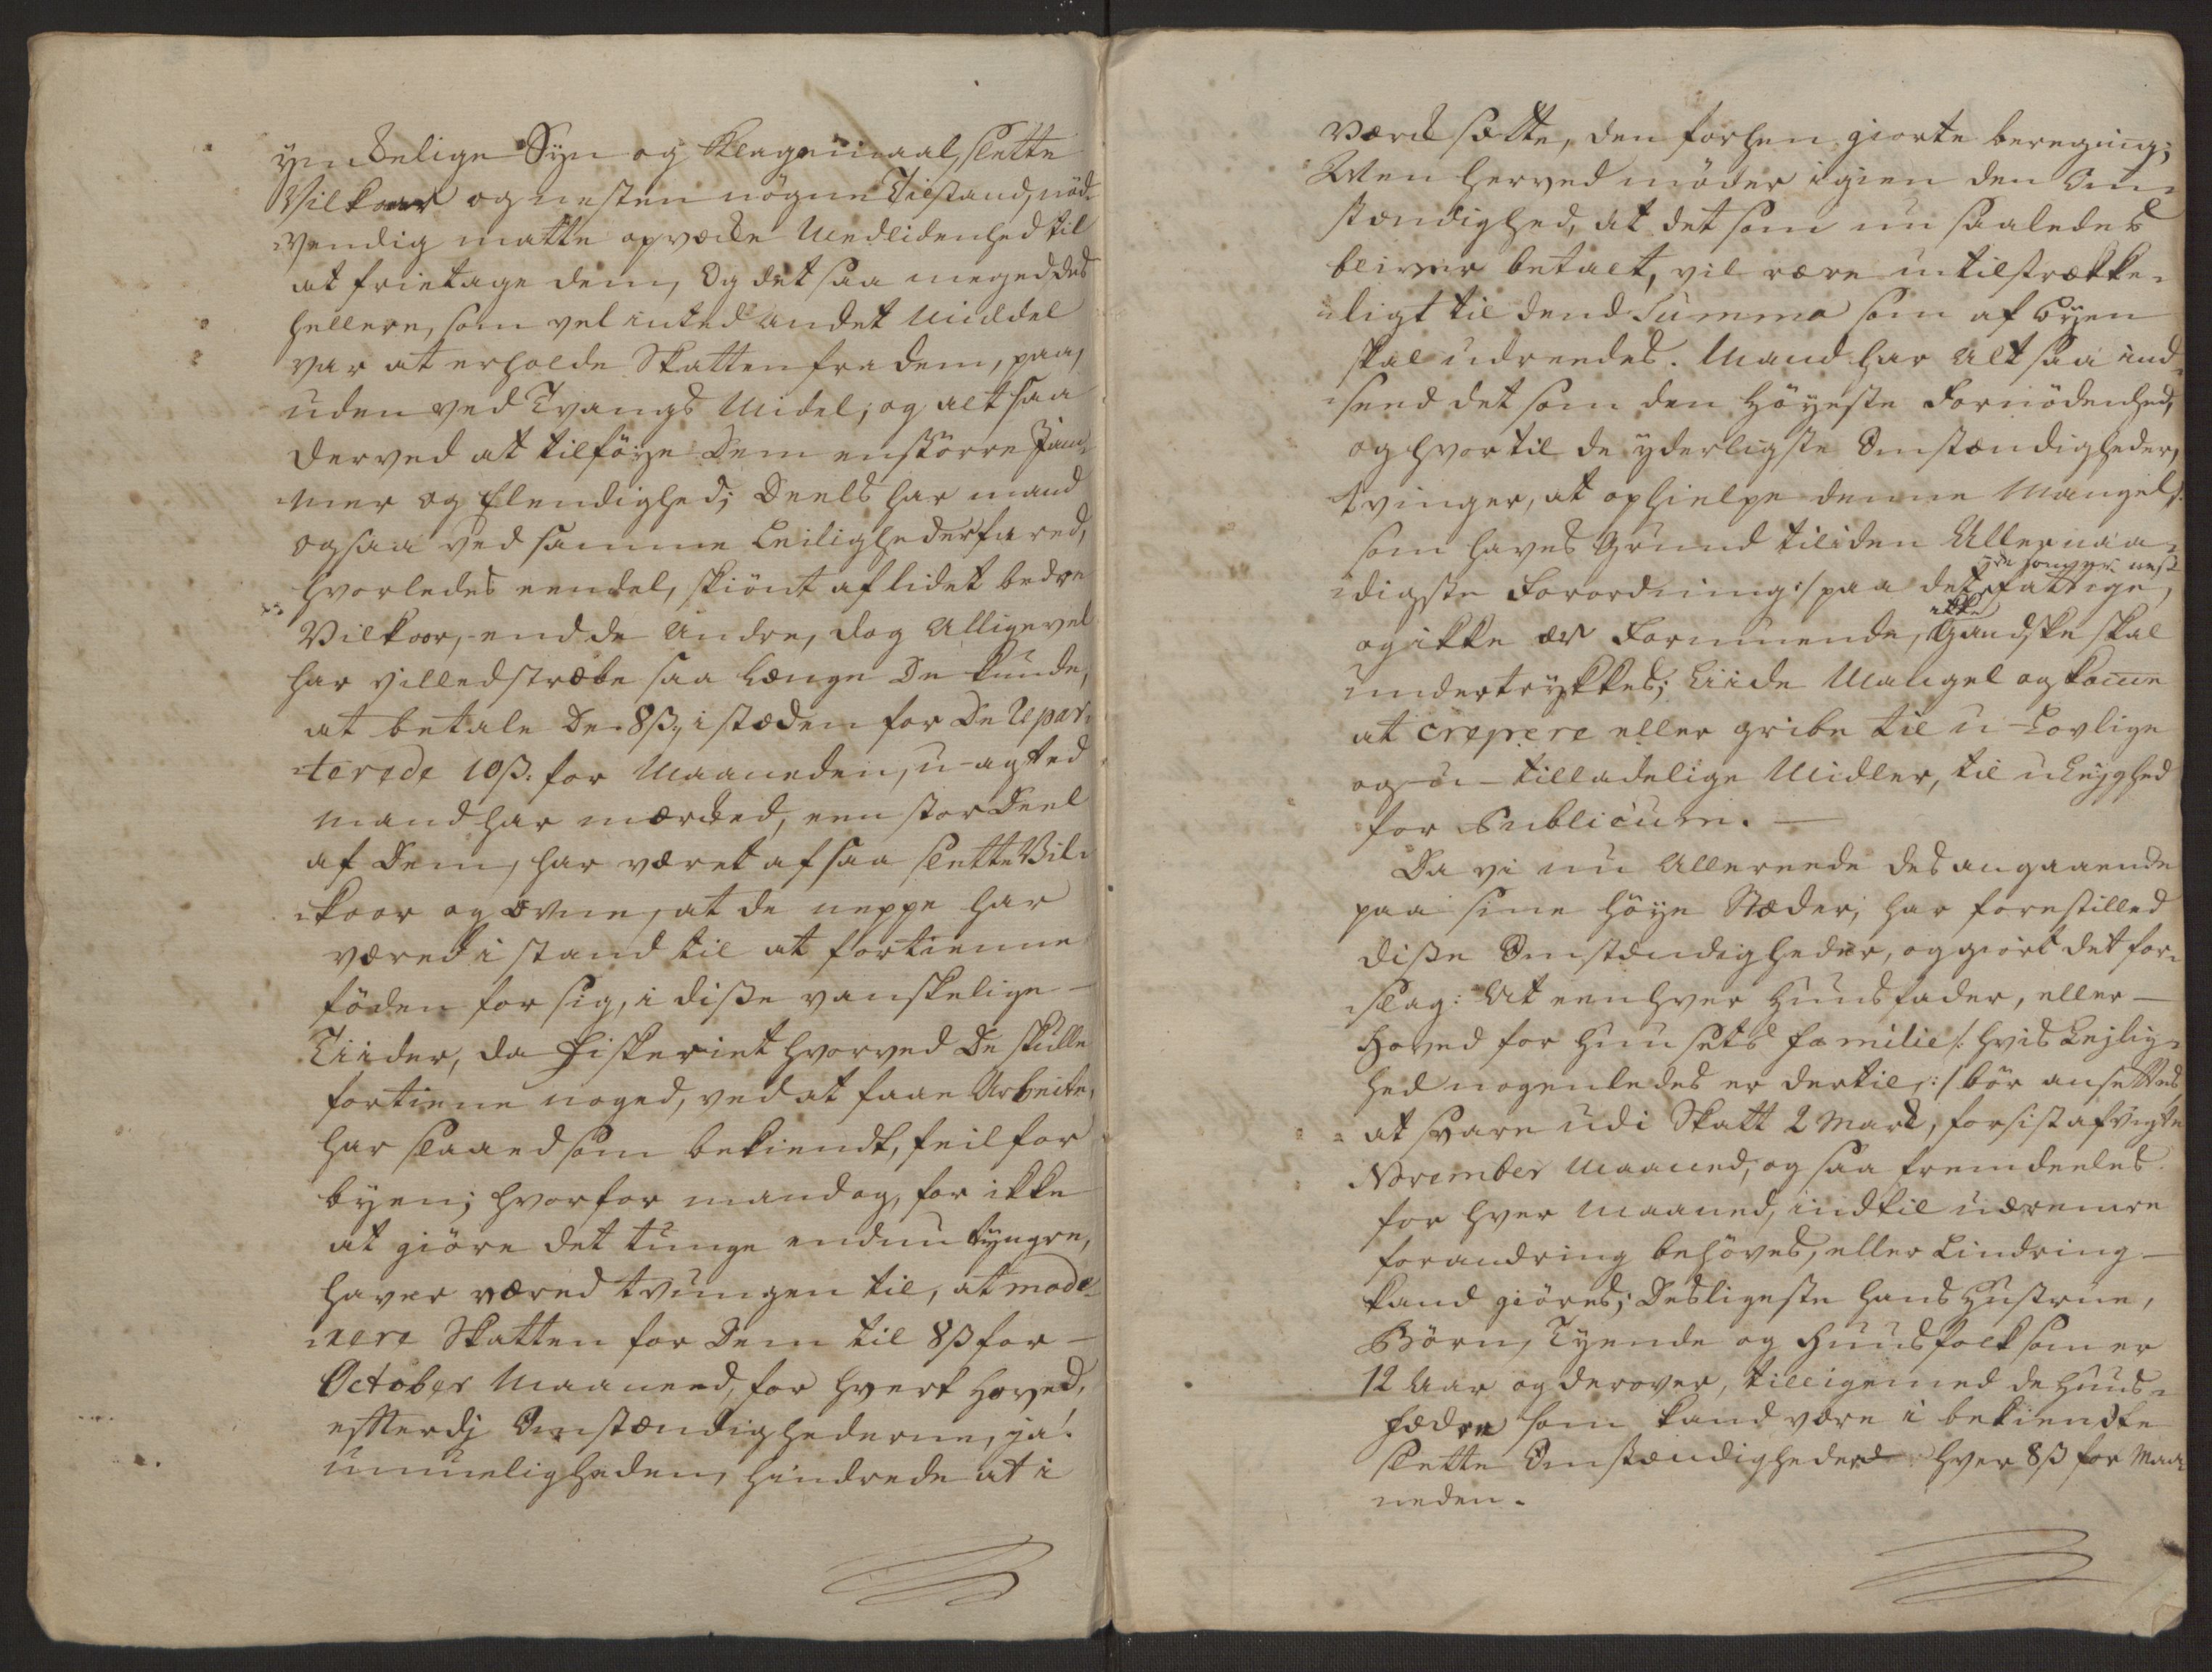 ynkelige Syn og Klagemaal, slette
Vilkaar og nesten nögne Tilstand, nöd-
vendig matte opvæcke Medlidenhed til
at frietage dem, Og det saa meged des
hellere, som vel inted andet Middel
var at erholde Skatten fra dem, paa,
uden ved Tvangs Midel; og alt saa
derved at tilföye Dem en större Jam-
mer og Elendighed; Deels har mand
ogsaa ved samme Leiligheder fared,
hvorledes eendel, skiönt af lidet bedre
Vilkoor, end de Andre, dog Alligevel
har villed stræbe saa længe De kunde,
at betale De 8 ß, i stæden for De Repar-
terede 10 ß. for Maaneden, u-agted
mand har mærcked, een stor Deel
af Dem, har været af saa slette Vil-
koor og Evne, at de neppe har
væred i stand til at fortienne
föden for sig, i diße vanskelige
Tiider, da Fiskeriet hvorved De skulle
fortiene noged, ved at faae Arbeide,
har slaaed som bekiendt, feil for
byen; hvorfor mand og, for ikke
at giöre det tunge endnu tyngre,
haver væred tvungen til, at mode-
rere Skatten for Dem til 8 ß for
October Maaned, for hvert Hoved,
efterdj Omstændighederne, ja!
umueligheden, hindrede at i
Værck sætte, den forhen giorte beregning;
Men herved möder igien den Om-
stændighed, at det som nu saaledes
bliver betalt, vil være utilstrække-
ligt til dend Summa som af byen
skal udreedes. Mand har alt saa ind-
seed det som den Höyeste Fornödenhed,
og hvortil de yderligste Omstændigheder,
tvinger, at ophielpe denne Mangel /:
som haves Grund til i den Allernaa-
digste Forordning :/ paa det
de fattige,
og ikke er Formuende, ikke Gandske skal
undertrykkes; Liide Mangel og komme
at crepere eller gribe til u-Lovlige
og u-tilladelige Midler, til uLejghed
for Publicum.
Da vi nu Allereede des angaaende
paa sine höye Stæder, har forestilled
diße Omstændigheder, og giort det for-
slag: At eenhver Huusfader, eller
Hoved for Huusets familie /: hvis Lejlig-
hed nogenledes er dertil, :/ bör ansættes,
at svare udi Skatt 2 Marck, for sist afvigte
November Maaned, og saa fremdeeles
for hver Maaned, indtil nærmere
forandring behöves, eller Lindring
kand giöres; Desligeste hans Hustrue,
Börn, Tyende og Huusfolk som er
12 Aar og derover, tilligemed de Huus-
fædre som kand være i bekiendte
slette Omstændigheder hver 8 ß for Maa-
neden.